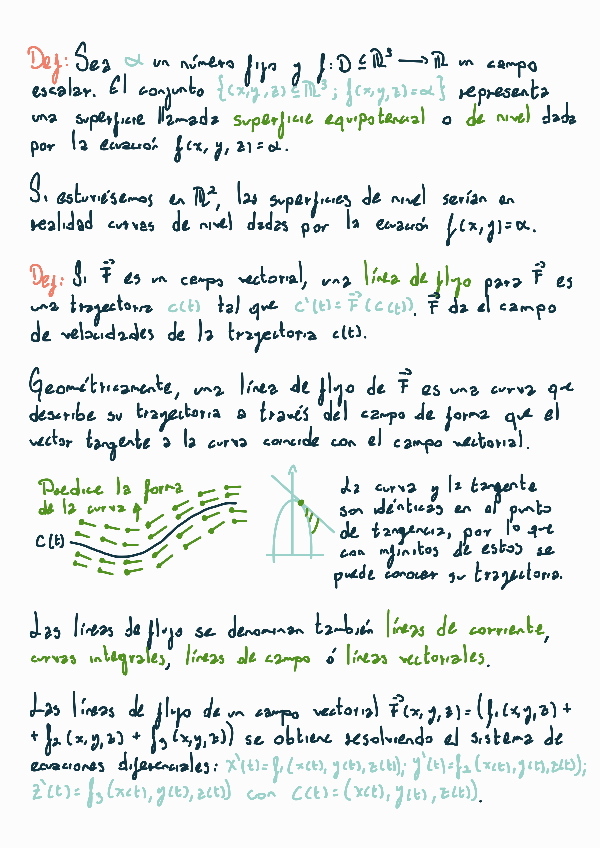 Def: Sea α un número fijo y f: D ⊆ ℝ³ → ℝ un campo
escalar. El conjunto {(x,y,z) ⊆ ℝ³ ; f(x,y,z)=α} representa
una superficie llamada superficie equipotencial o de nivel dada
por la ecuación f(x, y, z) = α.
Si estuviésemos en ℝ², las superficies de nivel serían en
realidad curvas de nivel dadas por la ecuación f(x,y)=α.
Def: Si F⃗ es un campo vectorial, una línea de flujo para F⃗ es
una trayectoria c(t) tal que c'(t) = F⃗(c(t)). F⃗ da el campo
de velocidades de la trayectoria c(t).
Geométricamente, una línea de flujo de F⃗ es una curva que
describe su trayectoria a través del campo de forma que el
vector tangente a la curva coincide con el campo vectorial.
Predice la forma
de la curva
C(t)
La curva y la tangente
son idénticas en el punto
de tangencia, por lo que
con infinitos de estos se
puede conocer su trayectoria.
Las líneas de flujo se denominan también líneas de corriente,
curvas integrales, líneas de campo ó líneas vectoriales.
Las líneas de flujo de un campo vectorial F⃗(x,y,z)=(f₁(x,y,z) +
+ f₂(x,y,z) + f₃(x,y,z)) se obtiene resolviendo el sistema de
ecuaciones diferenciales: x'(t)=f₁(x(t), y(t),z(t)); y'(t)=f₂(x(t),y(t),z(t));
z'(t)=f₃(x(t),y(t),z(t)) con C(t)=(x(t), y(t), z(t)).